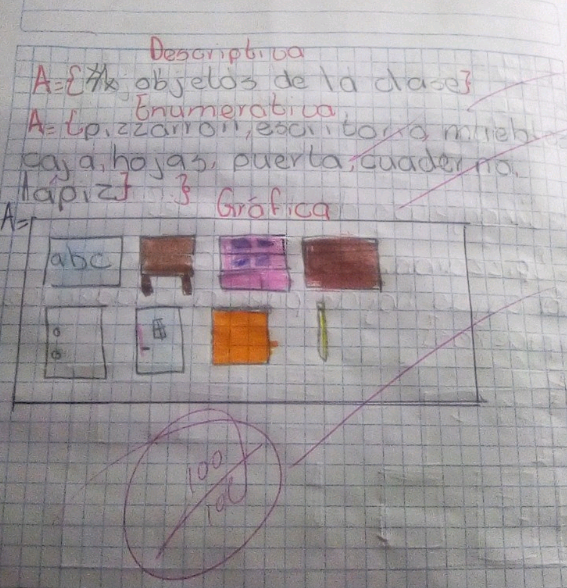 Descriptiva
A={x/x objetos de la clase}
Enumerativa
A={pizzarron, escritorio, mueble
caja, hojas, puerta, cuaderno,
lápiz} }
Gráfica
A=
abc
100
100